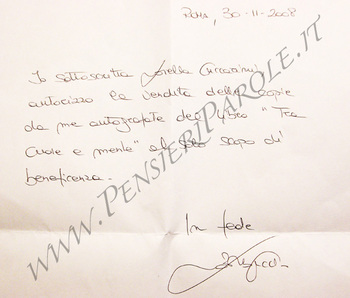 Roma, 30-11-2008
Io sottoscritta Lorella Cuccarini
autorizzo la vendita delle copie
da me autografate del libro "Tra
cuore e mente" al solo scopo di
beneficenza.
In fede
www.PensieriParole.it